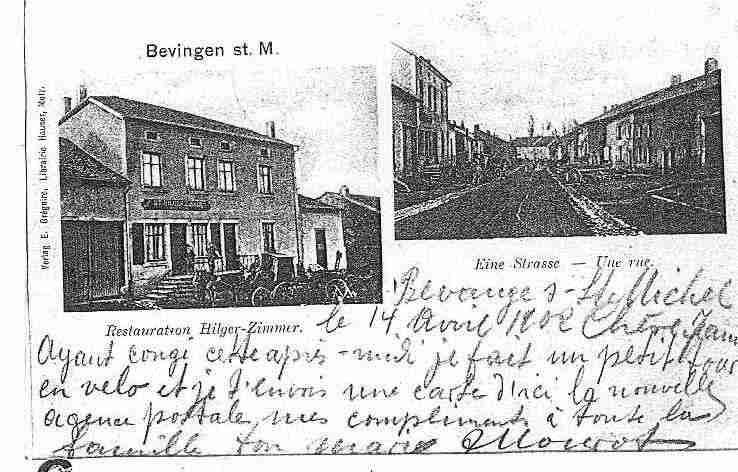 Bevingen st. M.
Verlag E. Grégoire, Librairie Hauser, Metz.
Eine Strasse — Une rue.
Restauration Hilger-Zimmer.
Bevange s-St Michel
le 14 Avril 1902 Chère
Ayant congé cette après-midi je fait un petit tour
en velo et je t'envois une carte d'ici la nouvelle
agence postale mes compliments à toute la
famille ton marie